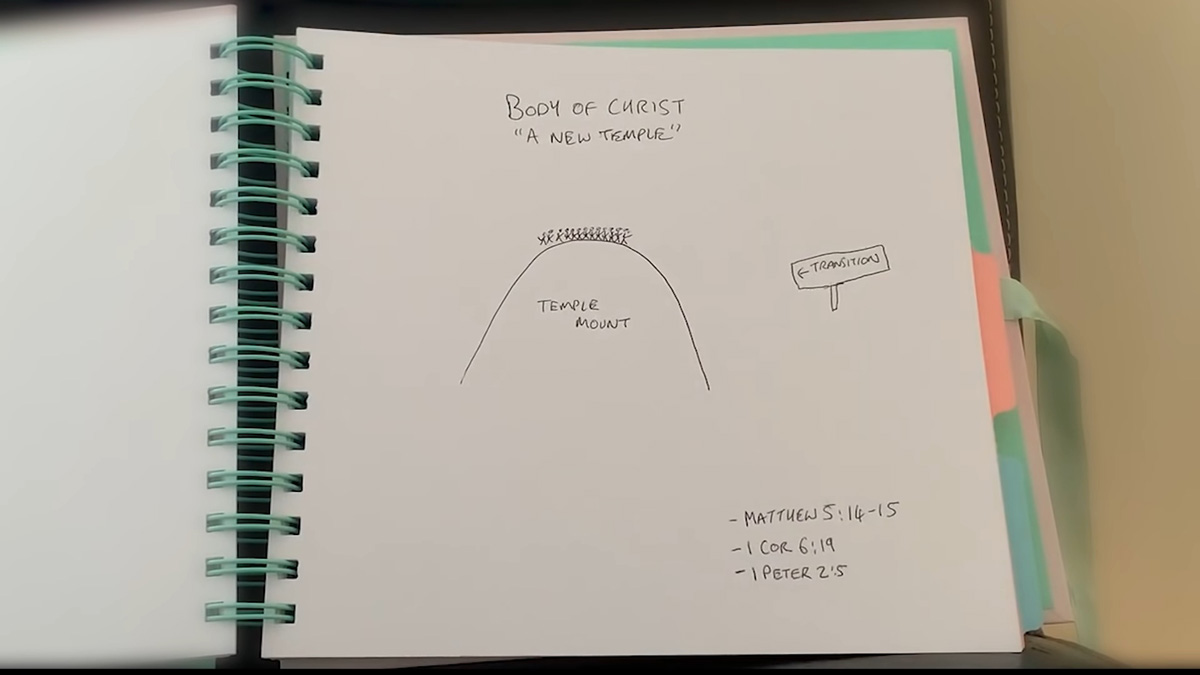 BODY OF CHRIST
"A NEW TEMPLE"
← TRANSITION
TEMPLE
MOUNT
- MATTHEW 5:14-15
- 1 COR 6:19
- 1 PETER 2:5